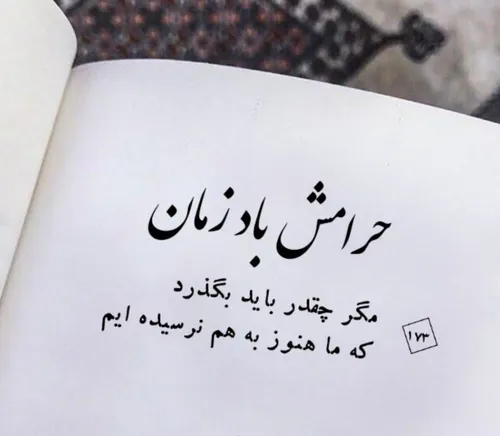 حرامش باد زمان
مگر چقدر باید بگذرد
که ما هنوز به هم نرسیده ایم
۱۷۳